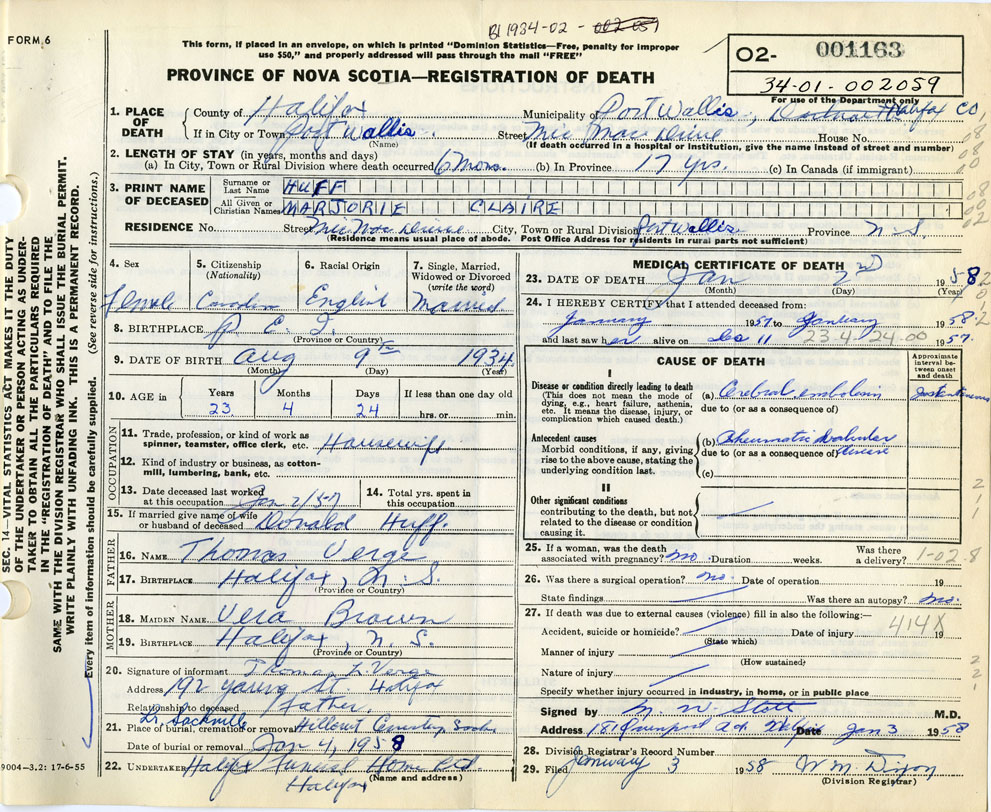 B1 1934-02 - 002 059
FORM 6
This form, if placed in an envelope, on which is printed "Dominion Statistics—Free, penalty for improper
use $50," and properly addressed will pass through the mail "FREE"
02- 001163
34-01-002059
For use of the Department only
PROVINCE OF NOVA SCOTIA—REGISTRATION OF DEATH
SEC. 14—VITAL STATISTICS ACT MAKES IT THE DUTY
OF THE UNDERTAKER OR PERSON ACTING AS UNDER-
TAKER TO OBTAIN ALL THE PARTICULARS REQUIRED
IN THE "REGISTRATION OF DEATH" AND TO FILE THE
SAME WITH THE DIVISION REGISTRAR WHO SHALL ISSUE THE BURIAL PERMIT.
WRITE PLAINLY WITH UNFADING INK. THIS IS A PERMANENT RECORD.
Every item of information should be carefully supplied. (See reverse side for instructions.)
9004-3.2: 17-6-55
1. PLACE OF DEATH
County of Halifax Municipality of Port Wallis, Halifax CO,
If in City or Town Port Wallis. Street Mic Mac Drive House No.
(Name) (If death occurred in a hospital or institution, give the name instead of street and number)
2. LENGTH OF STAY (in years, months and days)
(a) In City, Town or Rural Division where death occurred 6 mons. (b) In Province 17 yrs. (c) In Canada (if immigrant)
3. PRINT NAME OF DECEASED
Surname or Last Name HUFF
All Given or Christian Names MARJORIE CLAIRE
RESIDENCE No. Street Mic Mac Drive City, Town or Rural Division Port Wallis Province N.S.
(Residence means usual place of abode. Post Office Address for residents in rural parts not sufficient)
4. Sex Female
5. Citizenship (Nationality) Canadian
6. Racial Origin English
7. Single, Married, Widowed or Divorced (write the word) Married
8. BIRTHPLACE P. E. I.
(Province or Country)
9. DATE OF BIRTH Aug 9th 1934
(Month) (Day) (Year)
10. AGE in Years Months Days If less than one day old
23 4 24 hrs. or min.
OCCUPATION
11. Trade, profession, or kind of work as
spinner, teamster, office clerk, etc. Housewife
12. Kind of industry or business, as cotton-
mill, lumbering, bank, etc.
13. Date deceased last worked
at this occupation Jan 2/57
14. Total yrs. spent in
this occupation
15. If married give name of wife
or husband of deceased Donald Huff.
FATHER
16. NAME Thomas Verge
17. BIRTHPLACE Halifax, N.S.
(Province or Country)
MOTHER
18. MAIDEN NAME Vera Brown
19. BIRTHPLACE Halifax, N.S.
(Province or Country)
20. Signature of informant Thomas L. Verge
Address 192 Young St. Halifax
Relationship to deceased Father.
Sackville
21. Place of burial, cremation or removal Cemetery
Date of burial or removal Jan 4, 1958
22. UNDERTAKER Halifax Funeral Home Ltd.
(Name and address)
Halifax
MEDICAL CERTIFICATE OF DEATH
23. DATE OF DEATH Jan 2nd 1958
(Month) (Day) (Year)
24. I HEREBY CERTIFY that I attended deceased from:
January 1957 to January 1958
and last saw her alive on Dec 11 1957.
23-4-24-00
CAUSE OF DEATH
Approximate interval between onset and death
I
Disease or condition directly leading to death
(This does not mean the mode of
dying, e.g., heart failure, asthenia,
etc. It means the disease, injury, or
complication which caused death.)
(a) Cerebral embolism
due to (or as a consequence of)
Antecedent causes
Morbid conditions, if any, giving
rise to the above cause, stating the
underlying condition last.
(b) Rheumatic Valvular
due to (or as a consequence of) disease
(c)
II
Other significant conditions
contributing to the death, but not
related to the disease or condition
causing it.
25. If a woman, was the death
associated with pregnancy? no. Duration weeks. Was there
a delivery?
1-02.8
26. Was there a surgical operation? no. Date of operation 19
State findings Was there an autopsy? no.
27. If death was due to external causes (violence) fill in also the following:—
Accident, suicide or homicide? Date of injury 19
(State which)
414X
Manner of injury
(How sustained)
Nature of injury
Specify whether injury occurred in industry, in home, or in public place
Signed by M. W. Stott M.D.
Address Date Jan 3 1958
28. Division Registrar's Record Number
29. Filed January 3 1958 W M. Dixon
(Division Registrar)